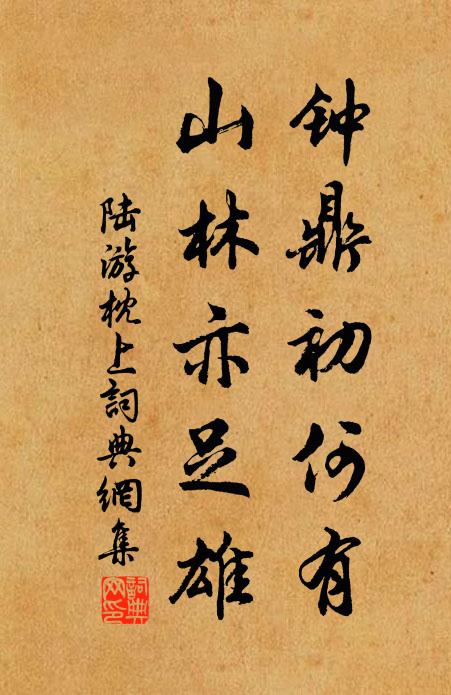 钟鼎初何有
山林亦足雄
陆游枕上詞典網集
詞典网印